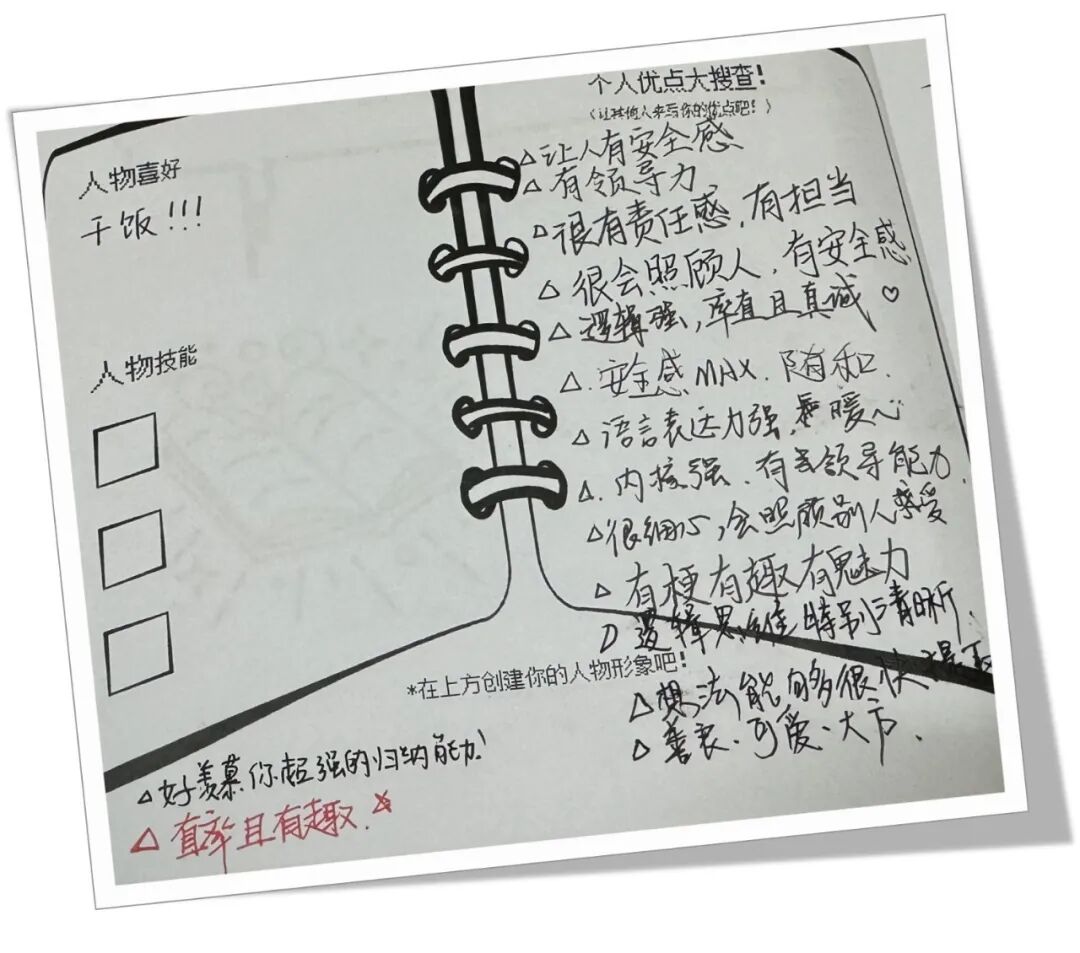 人物喜好
干饭!!!
人物技能
个人优点大搜查!
(让其他人来写你的优点吧!)
△让人有安全感
△有领导力
△很有责任感,有担当
△很会照顾人,有安全感
△逻辑强,率直且真诚♡
△.安全感MAX.随和.
△语言表达力强,暖心
△.内核强.有领导能力.
△很细心,会照顾别人感受
△有梗有趣有魅力
△逻辑思维特别清晰.
△想法能够很快
△善良.可爱.大方.
*在上方创建你的人物形象吧!
△好羡慕你超强的归纳能力!
△直率且有趣.